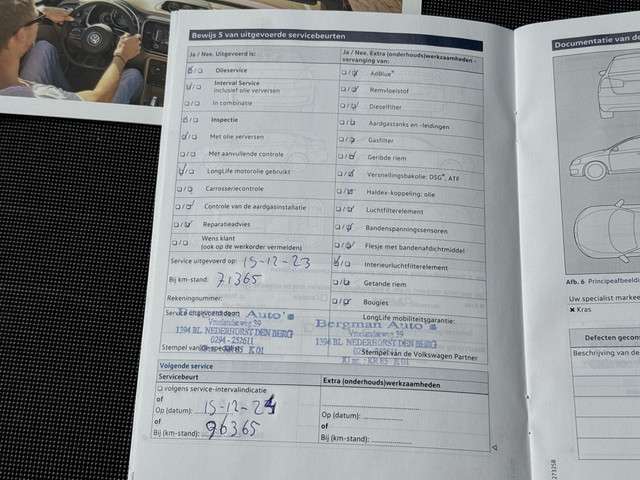 Bewijs 5 van uitgevoerde servicebeurten
Ja / Nee. Uitgevoerd is:
Olieservice
Interval Service
inclusief olie verversen
In combinatie
Inspectie
Met olie verversen
Met aanvullende controle
LongLife motorolie gebruikt
Carrosseriecontrole
Controle van de aardgasinstallatie
Reparatieadvies
Wens klant
(ook op de werkorder vermelden)
Service uitgevoerd op: 15-12-23
Bij km-stand: 71365
Rekeningnummer:
Service uitgevoerd door:
Auto's
Vreelandseweg 39
1394 BL NEDERHORST DEN BERG
0294 - 252611
K 01
Stempel van de specialist
Ja / Nee. Extra (onderhouds)werkzaamheden -
vervanging van:
AdBlue®
Remvloeistof
Dieselfilter
Aardgastanks en -leidingen
Gasfilter
Geribde riem
Versnellingsbakolie: DSG®, ATF
Haldex-koppeling: olie
Luchtfilterelement
Bandenspanningssensoren
Flesje met bandenafdichtmiddel
Interieurluchtfilterelement
Getande riem
Bougies
LongLife mobiliteitsgarantie:
Bergman Auto's
Vreelandseweg 39
1394 BL NEDERHORST DEN BERG
K 01
Stempel van de Volkswagen Partner
Volgende service
Servicebeurt
volgens service-intervalindicatie
of
Op (datum): 15-12-24
of
Bij (km-stand): 96365
Extra (onderhouds)werkzaamheden
Op (datum):
of
Bij (km-stand):
Documentatie van de
Afb. 6 Principeafbeeldi
Uw specialist markee
Kras
Defecten gecons
Beschrijving van de